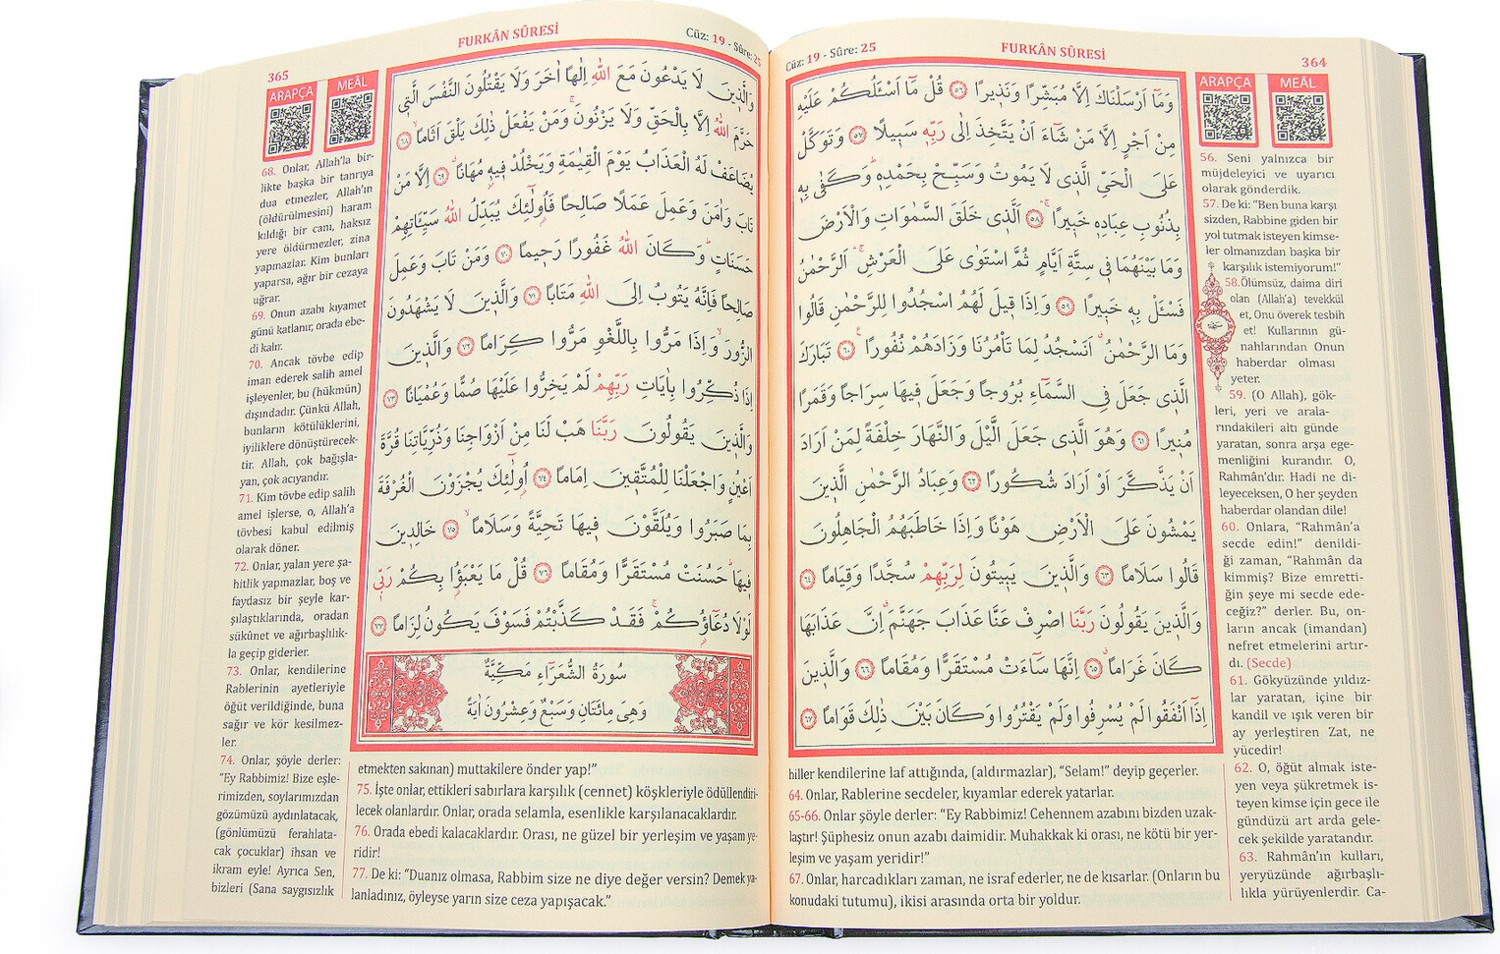 Cüz: 19 - Sûre: 25
FURKÂN SÛRESİ
364
ARAPÇA
MEÂL
وَمَٓا اَرْسَلْنَاكَ اِلَّا مُبَشِّرًا وَنَذ۪يرًا ﴿٥٦﴾ قُلْ مَٓا اَسْـَٔلُكُمْ عَلَيْهِ
مِنْ اَجْرٍ اِلَّا مَنْ شَٓاءَ اَنْ يَتَّخِذَ اِلٰى رَبِّه۪ سَب۪يلًا ﴿٥٧﴾ وَتَوَكَّلْ
عَلَى الْحَيِّ الَّذ۪ي لَا يَمُوتُ وَسَبِّحْ بِحَمْدِه۪ۜ وَكَفٰى بِه۪
بِذُنُوبِ عِبَادِه۪ خَب۪يرًاۚ ﴿٥٨﴾ اَلَّذ۪ي خَلَقَ السَّمٰوَاتِ وَالْاَرْضَ
وَمَا بَيْنَهُمَا ف۪ي سِتَّةِ اَيَّامٍ ثُمَّ اسْتَوٰى عَلَى الْعَرْشِۚ اَلرَّحْمٰنُ
فَسْـَٔلْ بِه۪ خَب۪يرًا ﴿٥٩﴾ وَاِذَا ق۪يلَ لَهُمُ اسْجُدُوا لِلرَّحْمٰنِ قَالُوا
وَمَا الرَّحْمٰنُۗ اَنَسْجُدُ لِمَا تَأْمُرُنَا وَزَادَهُمْ نُفُورًاۚ ﴿٦٠﴾ تَبَارَكَ
الَّذ۪ي جَعَلَ فِي السَّمَٓاءِ بُرُوجًا وَجَعَلَ ف۪يهَا سِرَاجًا وَقَمَرًا
مُن۪يرًا ﴿٦١﴾ وَهُوَ الَّذ۪ي جَعَلَ الَّيْلَ وَالنَّهَارَ خِلْفَةً لِمَنْ اَرَادَ
اَنْ يَذَّكَّرَ اَوْ اَرَادَ شُكُورًا ﴿٦٢﴾ وَعِبَادُ الرَّحْمٰنِ الَّذ۪ينَ
يَمْشُونَ عَلَى الْاَرْضِ هَوْنًا وَاِذَا خَاطَبَهُمُ الْجَاهِلُونَ
قَالُوا سَلَامًا ﴿٦٣﴾ وَالَّذ۪ينَ يَب۪يتُونَ لِرَبِّهِمْ سُجَّدًا وَقِيَامًا ﴿٦٤﴾
وَالَّذ۪ينَ يَقُولُونَ رَبَّنَا اصْرِفْ عَنَّا عَذَابَ جَهَنَّمَۗ اِنَّ عَذَابَهَا
كَانَ غَرَامًاۗ ﴿٦٥﴾ اِنَّهَا سَٓاءَتْ مُسْتَقَرًّا وَمُقَامًا ﴿٦٦﴾ وَالَّذ۪ينَ
اِذَٓا اَنْفَقُوا لَمْ يُسْرِفُوا وَلَمْ يَقْتُرُوا وَكَانَ بَيْنَ ذٰلِكَ قَوَامًا ﴿٦٧﴾
56. Seni yalnızca bir
müjdeleyici ve uyarıcı
olarak gönderdik.
57. De ki: “Ben buna karşı
sizden, Rabbine giden bir
yol tutmak isteyen kimse-
ler olmanızdan başka bir
karşılık istemiyorum!”
58.Ölümsüz, daima diri
olan (Allah’a) tevekkül
et, Onu överek tesbih
et! Kullarının gü-
nahlarından Onun
haberdar olması
yeter.
59. (O Allah), gök-
leri, yeri ve arala-
rındakileri altı günde
yaratan, sonra arşa ege-
menliğini kurandır. O,
Rahmân’dır. Hadi ne di-
leyeceksen, O her şeyden
haberdar olandan dile!
60. Onlara, “Rahmân’a
secde edin!” denildi-
ği zaman, “Rahmân da
kimmiş? Bize emretti-
ğin şeye mi secde ede-
ceğiz?” derler. Bu, on-
ların ancak (imandan)
nefret etmelerini artır-
dı. (Secde)
61. Gökyüzünde yıldız-
lar yaratan, içine bir
kandil ve ışık veren bir
ay yerleştiren Zat, ne
yücedir!
62. O, öğüt almak iste-
yen veya şükretmek is-
teyen kimse için gece ile
gündüzü art arda gele-
cek şekilde yaratandır.
63. Rahmân’ın kulları,
yeryüzünde ağırbaşlı-
lıkla yürüyenlerdir. Ca-
hiller kendilerine laf attığında, (aldırmazlar), “Selam!” deyip geçerler.
64. Onlar, Rablerine secdeler, kıyamlar ederek yatarlar.
65-66. Onlar şöyle derler: “Ey Rabbimiz! Cehennem azabını bizden uzak-
laştır! Şüphesiz onun azabı daimidir. Muhakkak ki orası, ne kötü bir yer-
leşim ve yaşam yeridir!”
67. Onlar, harcadıkları zaman, ne israf ederler, ne de kısarlar. (Onların bu
konudaki tutumu), ikisi arasında orta bir yoldur.
365
FURKÂN SÛRESİ
Cüz: 19 - Sûre: 25
ARAPÇA
MEÂL
وَالَّذ۪ينَ لَا يَدْعُونَ مَعَ اللّٰهِ اِلٰهًا اٰخَرَ وَلَا يَقْتُلُونَ النَّفْسَ الَّت۪ي
حَرَّمَ اللّٰهُ اِلَّا بِالْحَقِّ وَلَا يَزْنُونَۚ وَمَنْ يَفْعَلْ ذٰلِكَ يَلْقَ اَثَامًاۙ ﴿٦٨﴾
يُضَاعَفْ لَهُ الْعَذَابُ يَوْمَ الْقِيٰمَةِ وَيَخْلُدْ ف۪يه۪ مُهَانًاۗ ﴿٦٩﴾ اِلَّا مَنْ
تَابَ وَاٰمَنَ وَعَمِلَ عَمَلًا صَالِحًا فَاُو۬لٰٓئِكَ يُبَدِّلُ اللّٰهُ سَيِّـَٔاتِهِمْ
حَسَنَاتٍۜ وَكَانَ اللّٰهُ غَفُورًا رَح۪يمًا ﴿٧٠﴾ وَمَنْ تَابَ وَعَمِلَ
صَالِحًا فَاِنَّهُ يَتُوبُ اِلَى اللّٰهِ مَتَابًا ﴿٧١﴾ وَالَّذ۪ينَ لَا يَشْهَدُونَ
الزُّورَۙ وَاِذَا مَرُّوا بِاللَّغْوِ مَرُّوا كِرَامًا ﴿٧٢﴾ وَالَّذ۪ينَ
اِذَا ذُكِّرُوا بِاٰيَاتِ رَبِّهِمْ لَمْ يَخِرُّوا عَلَيْهَا صُمًّا وَعُمْيَانًا ﴿٧٣﴾
وَالَّذ۪ينَ يَقُولُونَ رَبَّنَا هَبْ لَنَا مِنْ اَزْوَاجِنَا وَذُرِّيَّاتِنَا قُرَّةَ
اَعْيُنٍ وَاجْعَلْنَا لِلْمُتَّق۪ينَ اِمَامًا ﴿٧٤﴾ اُو۬لٰٓئِكَ يُجْزَوْنَ الْغُرْفَةَ
بِمَا صَبَرُوا وَيُلَقَّوْنَ ف۪يهَا تَحِيَّةً وَسَلَامًاۙ ﴿٧٥﴾ خَالِد۪ينَ
ف۪يهَاۜ حَسُنَتْ مُسْتَقَرًّا وَمُقَامًا ﴿٧٦﴾ قُلْ مَا يَعْبَؤُ۬ا بِكُمْ رَبّ۪ي
لَوْلَا دُعَٓاؤُ۬كُمْۚ فَقَدْ كَذَّبْتُمْ فَسَوْفَ يَكُونُ لِزَامًا ﴿٧٧﴾
سُورَةُ الشُّعَرَٓاءِ مَكِّيَّةٌ
وَهِيَ مِائَتَانِ وَسَبْعٌ وَعِشْرُونَ اٰيَةً
68. Onlar, Allah’la bir-
likte başka bir tanrıya
dua etmezler, Allah’ın
(öldürülmesini) haram
kıldığı bir canı, haksız
yere öldürmezler, zina
yapmazlar. Kim bunları
yaparsa, ağır bir cezaya
uğrar.
69. Onun azabı kıyamet
günü katlanır, orada ebe-
di kalır.
70. Ancak tövbe edip
iman ederek salih amel
işleyenler, bu (hükmün)
dışındadır. Çünkü Allah,
bunların kötülüklerini,
iyiliklere dönüştürecek-
tir. Allah, çok bağışla-
yan, çok acıyandır.
71. Kim tövbe edip salih
amel işlerse, o, Allah’a
tövbesi kabul edilmiş
olarak döner.
72. Onlar, yalan yere şa-
hitlik yapmazlar, boş ve
faydasız bir şeyle kar-
şılaştıklarında, oradan
sükûnet ve ağırbaşlılık-
la geçip giderler.
73. Onlar, kendilerine
Rablerinin ayetleriyle
öğüt verildiğinde, buna
sağır ve kör kesilmez-
ler.
74. Onlar, şöyle derler:
“Ey Rabbimiz! Bize eşle-
rimizden, soylarımızdan
gözümüzü aydınlatacak,
(gönlümüzü ferahlata-
cak çocuklar) ihsan ve
ikram eyle! Ayrıca Sen,
bizleri (Sana saygısızlık
etmekten sakınan) muttakilere önder yap!”
75. İşte onlar, ettikleri sabırlara karşılık (cennet) köşkleriyle ödüllendiri-
lecek olanlardır. Onlar, orada selamla, esenlikle karşılanacaklardır.
76. Orada ebedi kalacaklardır. Orası, ne güzel bir yerleşim ve yaşam ye-
ridir!
77. De ki: “Duanız olmasa, Rabbim size ne diye değer versin? Demek ya-
lanladınız, öyleyse yarın size ceza yapışacak.”